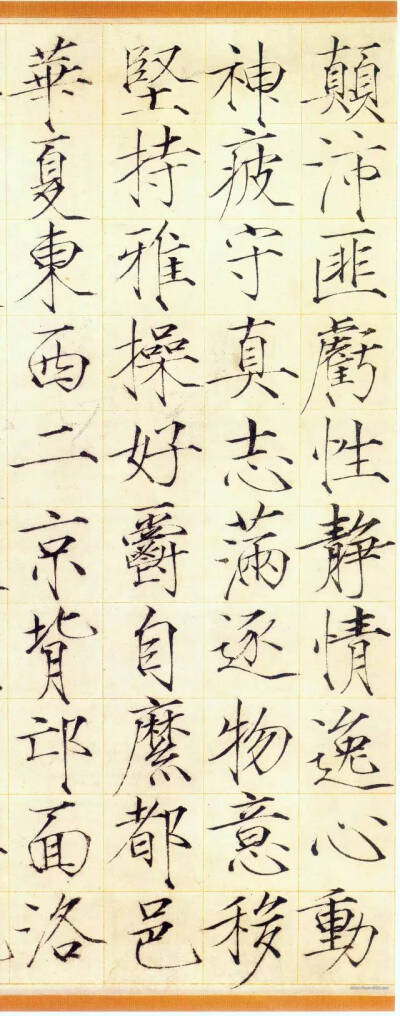 顛沛匪虧性靜情逸心動
神疲守真志滿逐物意移
堅持雅操好爵自縻都邑
華夏東西二京背邙面洛